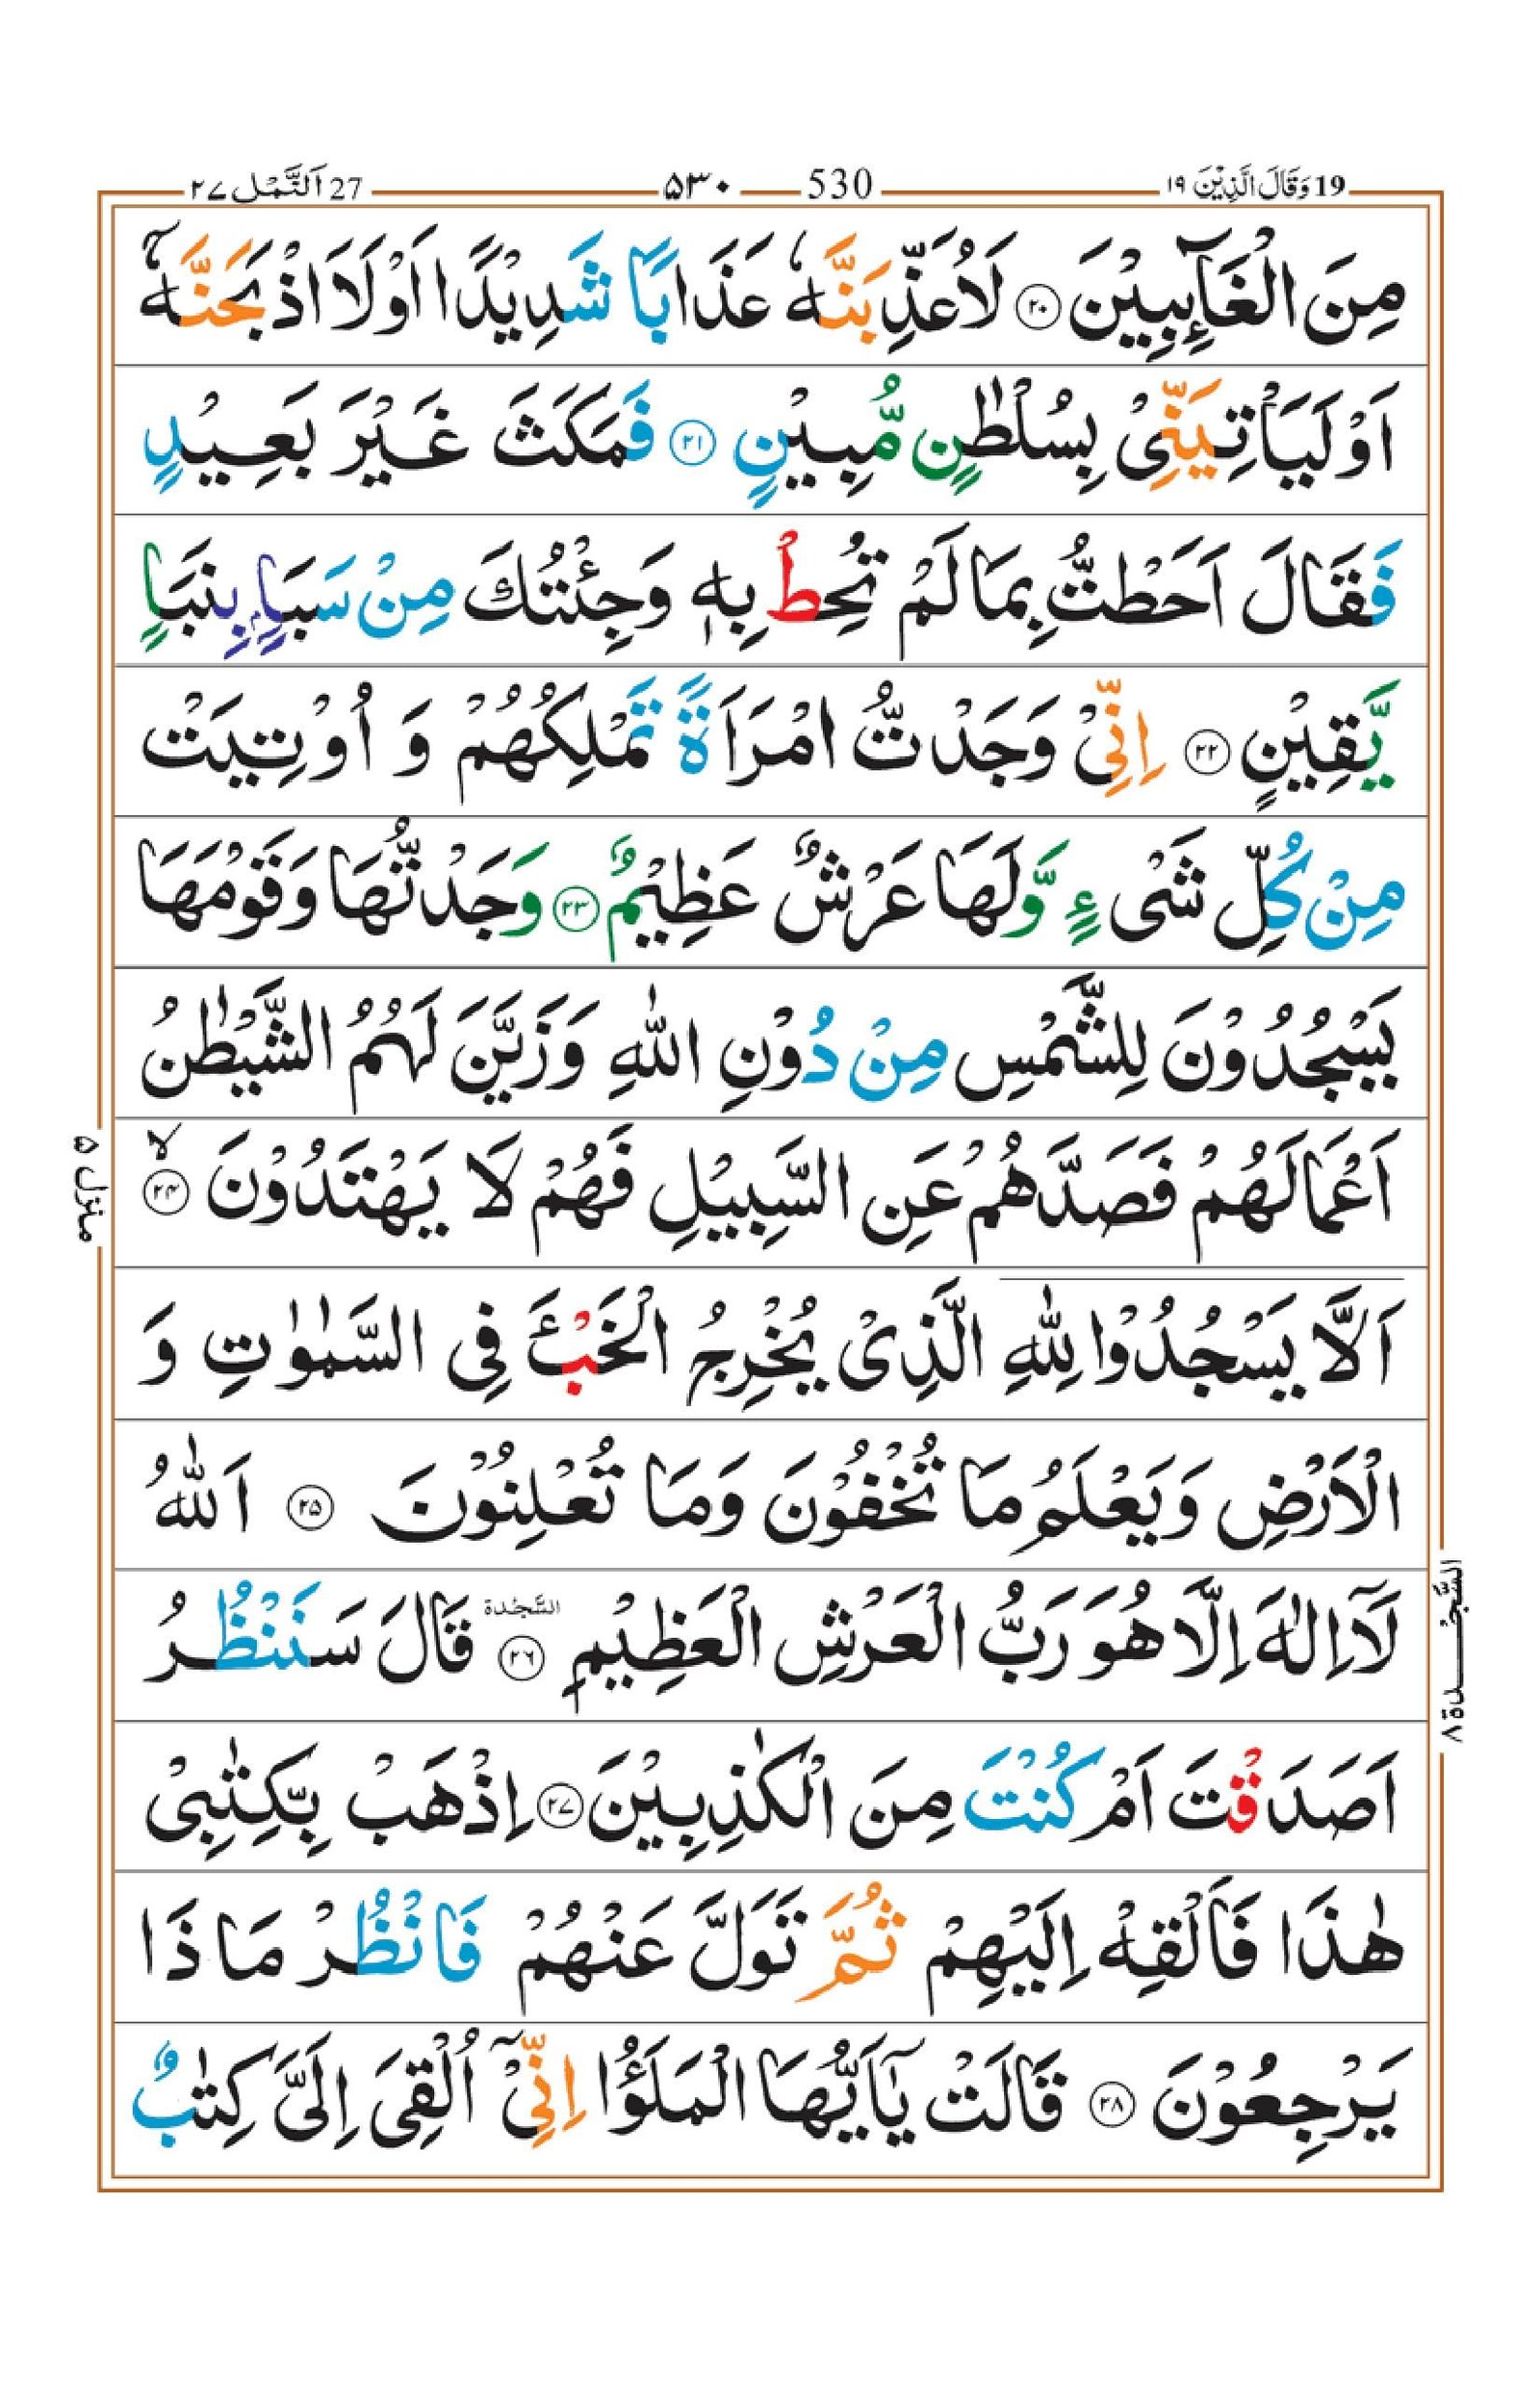 19 وَقَالَ الَّذِيْنَ ١٩ 530 ۵۳۰ 27 اَلنَّمْل ۲۷
مِنَ الْغَآىِٕبِيْنَ ۲۰ لَاُعَذِّبَنَّهٗ عَذَابًا شَدِيْدًا اَوْلَاَاذْبَحَنَّهٗۤ
اَوْلَيَاْتِيَنِّىْ بِسُلْطٰنٍ مُّبِيْنٍ ۲۱ فَمَكَثَ غَيْرَ بَعِيْدٍ
فَقَالَ اَحَطْتُّ بِمَا لَمْ تُحِطْ بِهٖ وَجِئْتُكَ مِنْ سَبَاٍۭ بِنَبَاٍ
يَّقِيْنٍ ۲۲ اِنِّىْ وَجَدْتُّ امْرَاَةً تَمْلِكُهُمْ وَ اُوْتِيَتْ
مِنْ كُلِّ شَىْءٍ وَّلَهَا عَرْشٌ عَظِيْمٌ ۲۳ وَجَدْتُّهَا وَقَوْمَهَا
يَسْجُدُوْنَ لِلشَّمْسِ مِنْ دُوْنِ اللّٰهِ وَزَيَّنَ لَهُمُ الشَّيْطٰنُ
اَعْمَالَهُمْ فَصَدَّهُمْ عَنِ السَّبِيْلِ فَهُمْ لَا يَهْتَدُوْنَ ۙ ۲۴
منزل ۵
اَلَّا يَسْجُدُوْا لِلّٰهِ الَّذِىْ يُخْرِجُ الْخَبْءَ فِى السَّمٰوٰتِ وَ
الْاَرْضِ وَيَعْلَمُ مَا تُخْفُوْنَ وَمَا تُعْلِنُوْنَ ۲۵ اَللّٰهُ
لَاۤ اِلٰهَ اِلَّا هُوَ رَبُّ الْعَرْشِ الْعَظِيْمِ ۲۶ السَّجْدة قَالَ سَنَنْظُرُ
السَّجْدة ۸
اَصَدَقْتَ اَمْ كُنْتَ مِنَ الْكٰذِبِيْنَ ۲۷ اِذْهَبْ بِّكِتٰبِىْ
هٰذَا فَاَلْقِهْ اِلَيْهِمْ ثُمَّ تَوَلَّ عَنْهُمْ فَانْظُرْ مَاذَا
يَرْجِعُوْنَ ۲۸ قَالَتْ يٰۤاَيُّهَا الْمَلَؤُا اِنِّىْۤ اُلْقِىَ اِلَىَّ كِتٰبٌ